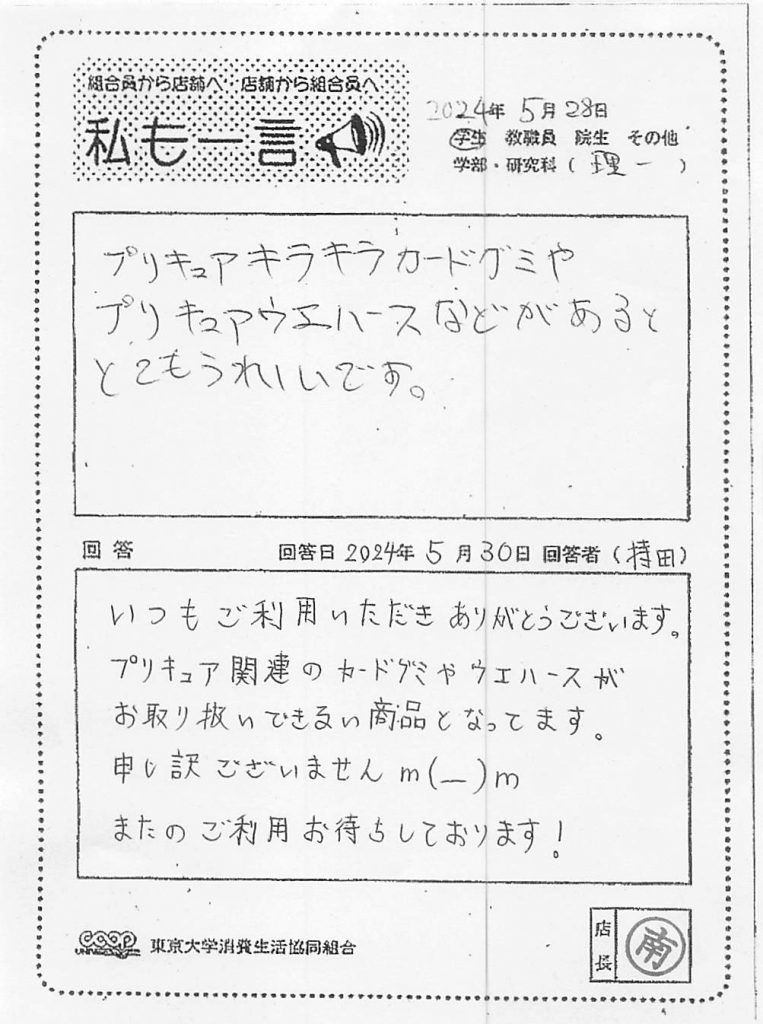 組合員から店舗へ・店舗から組合員へ
私も一言
2024年 5月 28日
学生 教職員 院生 その他
学部・研究科(理一)
プリキュアキラキラカードグミや
プリキュアウエハースなどがあると
とてもうれしいです。
回答 回答日 2024年 5月 30日 回答者(持田)
いつもご利用いただきありがとうございます。
プリキュア関連のカードグミやウエハースが
お取り扱いできるい商品となってます。
申し訳ございません m(_)m
またのご利用お待ちしております!
COOP 東京大学消費生活協同組合
店長 南